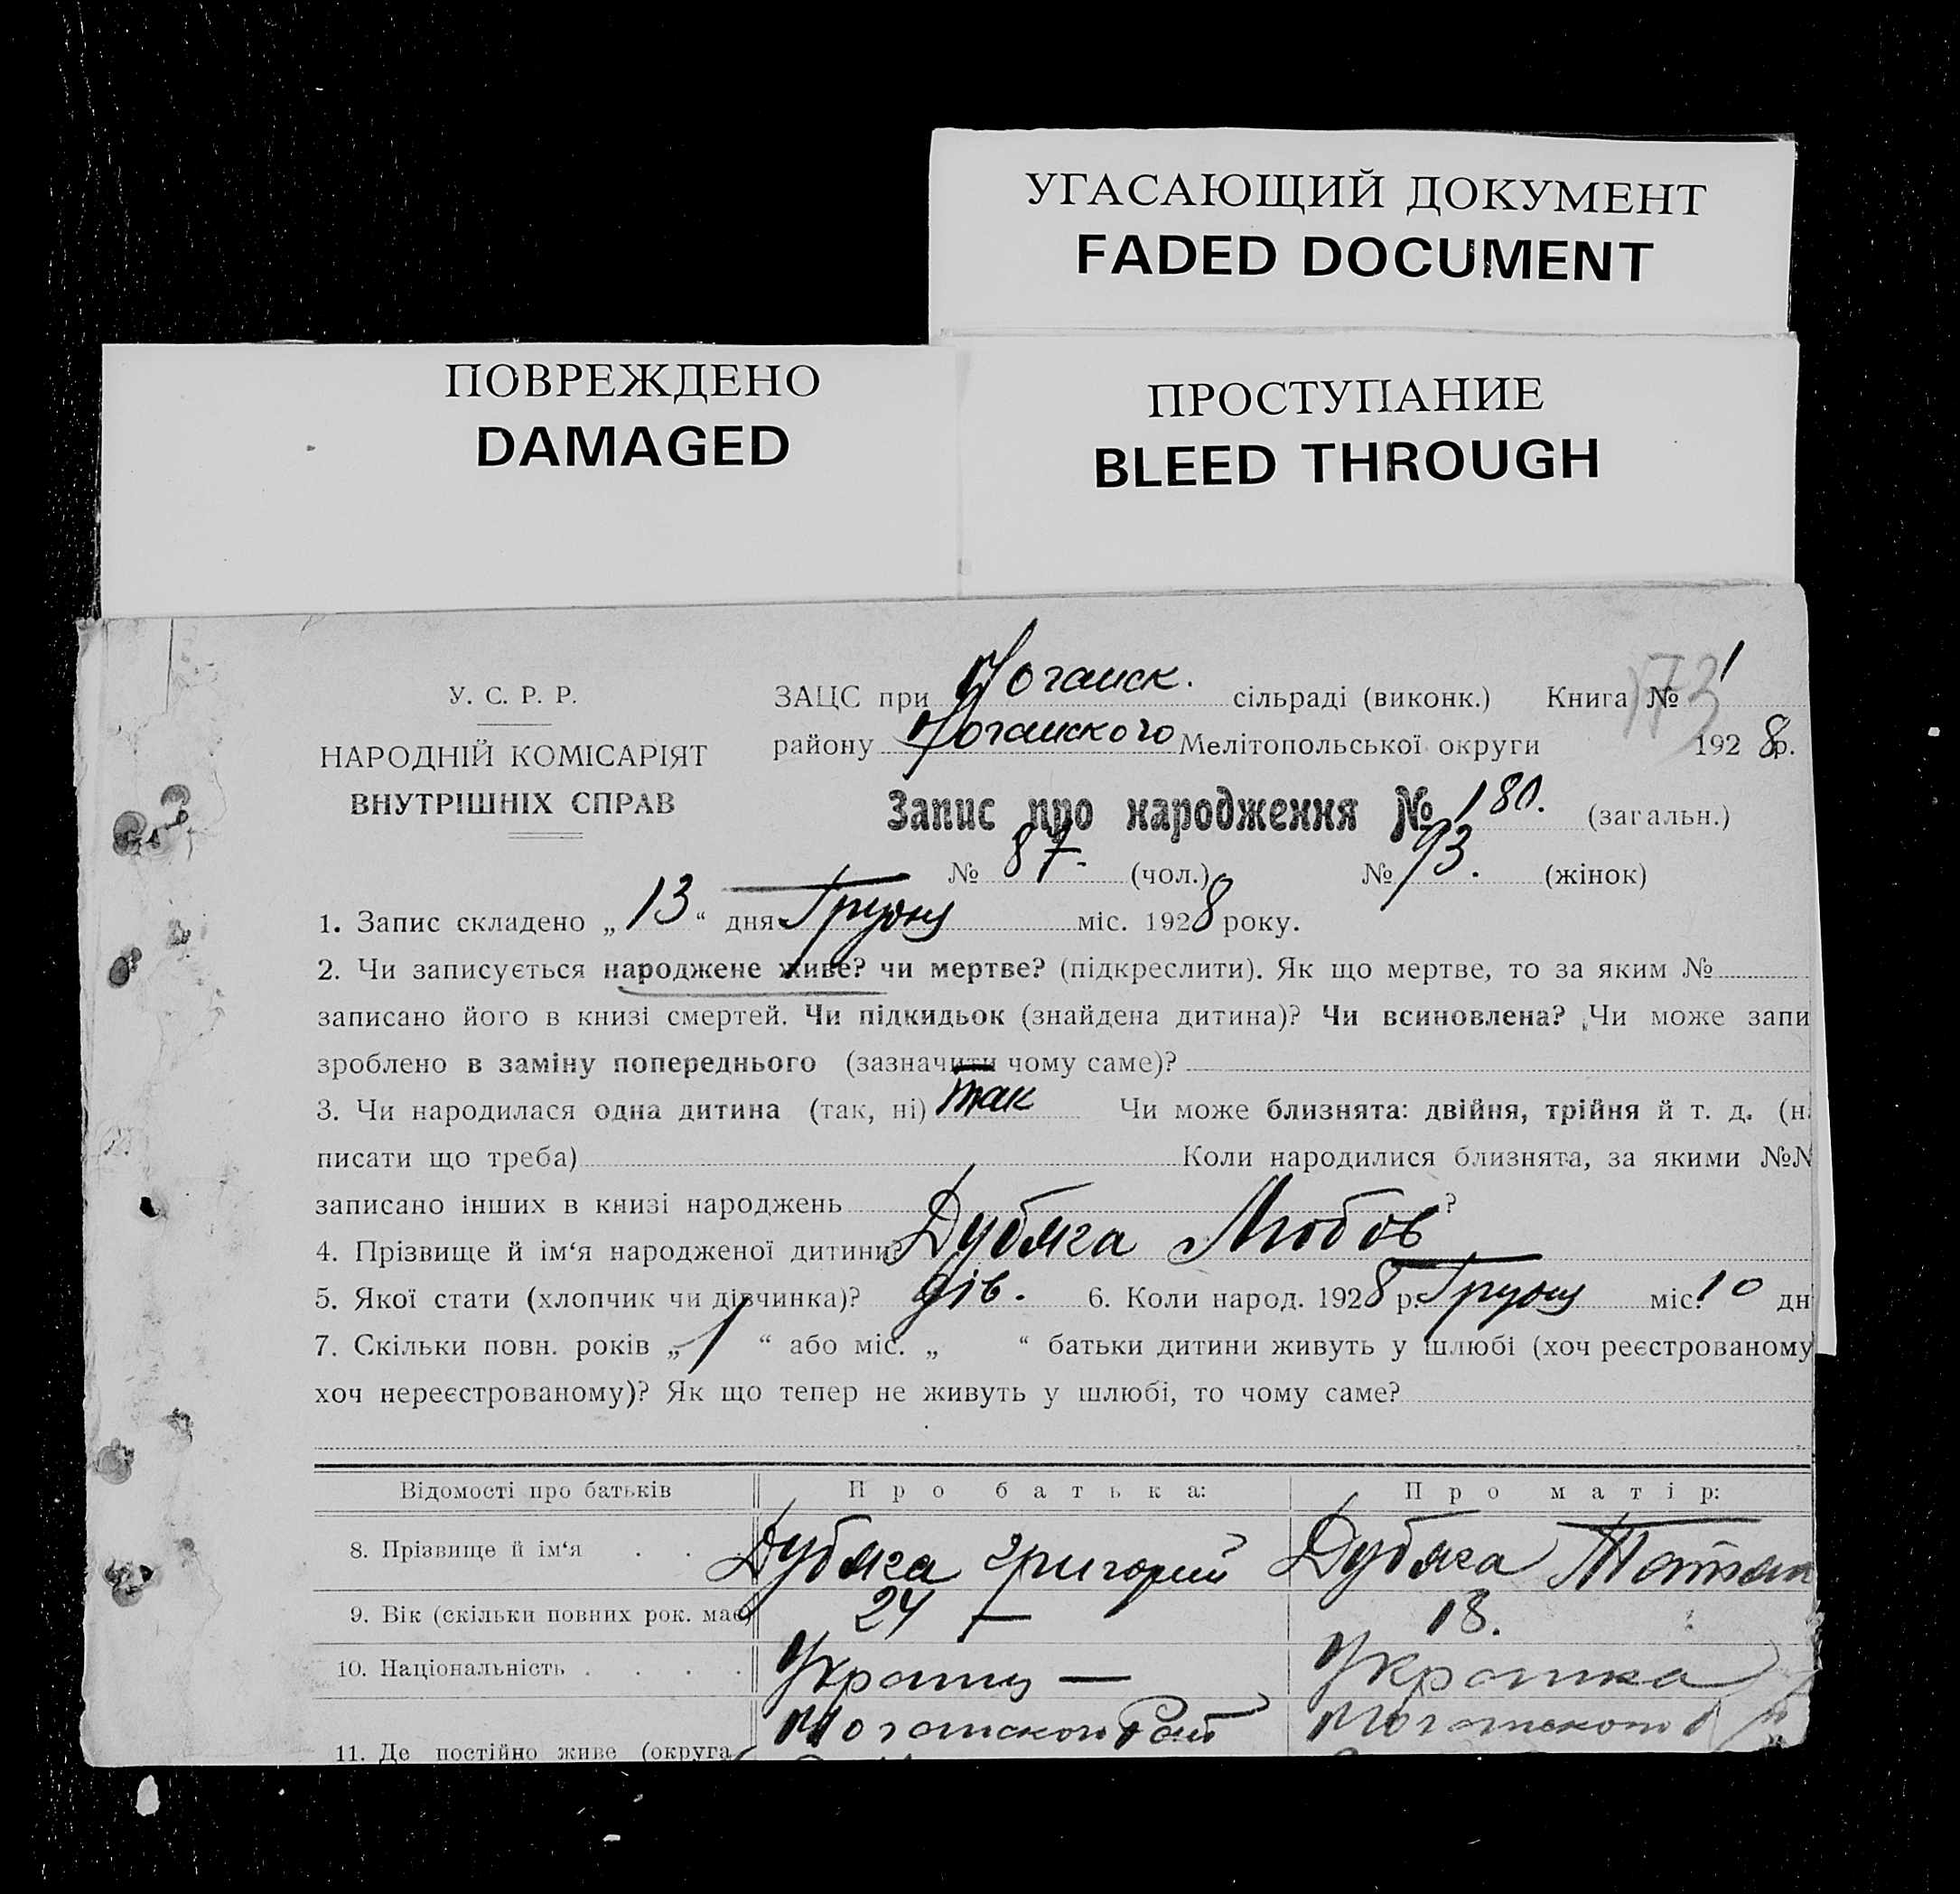 УГАСАЮЩИЙ ДОКУМЕНТ
FADED DOCUMENT
ПОВРЕЖДЕНО
DAMAGED
ПРОСТУПАНИЕ
BLEED THROUGH
У. С. Р. Р.
НАРОДНІЙ КОМІСАРІЯТ
ВНУТРІШНІХ СПРАВ
173
ЗАЦС при Ногайск. сільраді (виконк.) Книга № 1
району Ногайского Мелітопольської округи 1928 р.
Запис про народження № 180. (загальн.)
№ 87. (чол.) № 93. (жінок)
1. Запис складено „13“ дня Грудня міс. 1928 року.
2. Чи записується народжене живе? чи мертве? (підкреслити). Як що мертве, то за яким №
записано його в книзі смертей. Чи підкидьок (знайдена дитина)? Чи всиновлена? Чи може запи
зроблено в заміну попереднього (зазначити чому саме)?
3. Чи народилася одна дитина (так, ні) так Чи може близнята: двійня, трійня й т. д. (н
писати що треба) Коли народилися близнята, за якими №№
записано інших в книзі народжень ?
4. Прізвище й ім‘я народженої дитини? Дубяга Любов
5. Якої стати (хлопчик чи дівчинка)? дів. 6. Коли народ. 1928 р. Грудня міс. 10 дн
7. Скільки повн. років „1“ або міс. „ “ батьки дитини живуть у шлюбі (хоч реєстрованому
хоч нереєстрованому)? Як що тепер не живуть у шлюбі, то чому саме?
Відомості про батьків Про батька: Про матір:
8. Прізвище й ім‘я . . . Дубяга Григорий Дубяга Татян
9. Вік (скільки повних рок. має) 24 — 18.
10. Національність . . . . Украинц — Украинка
11. Де постійно живе (округа, Ногайского Рай Ногайского